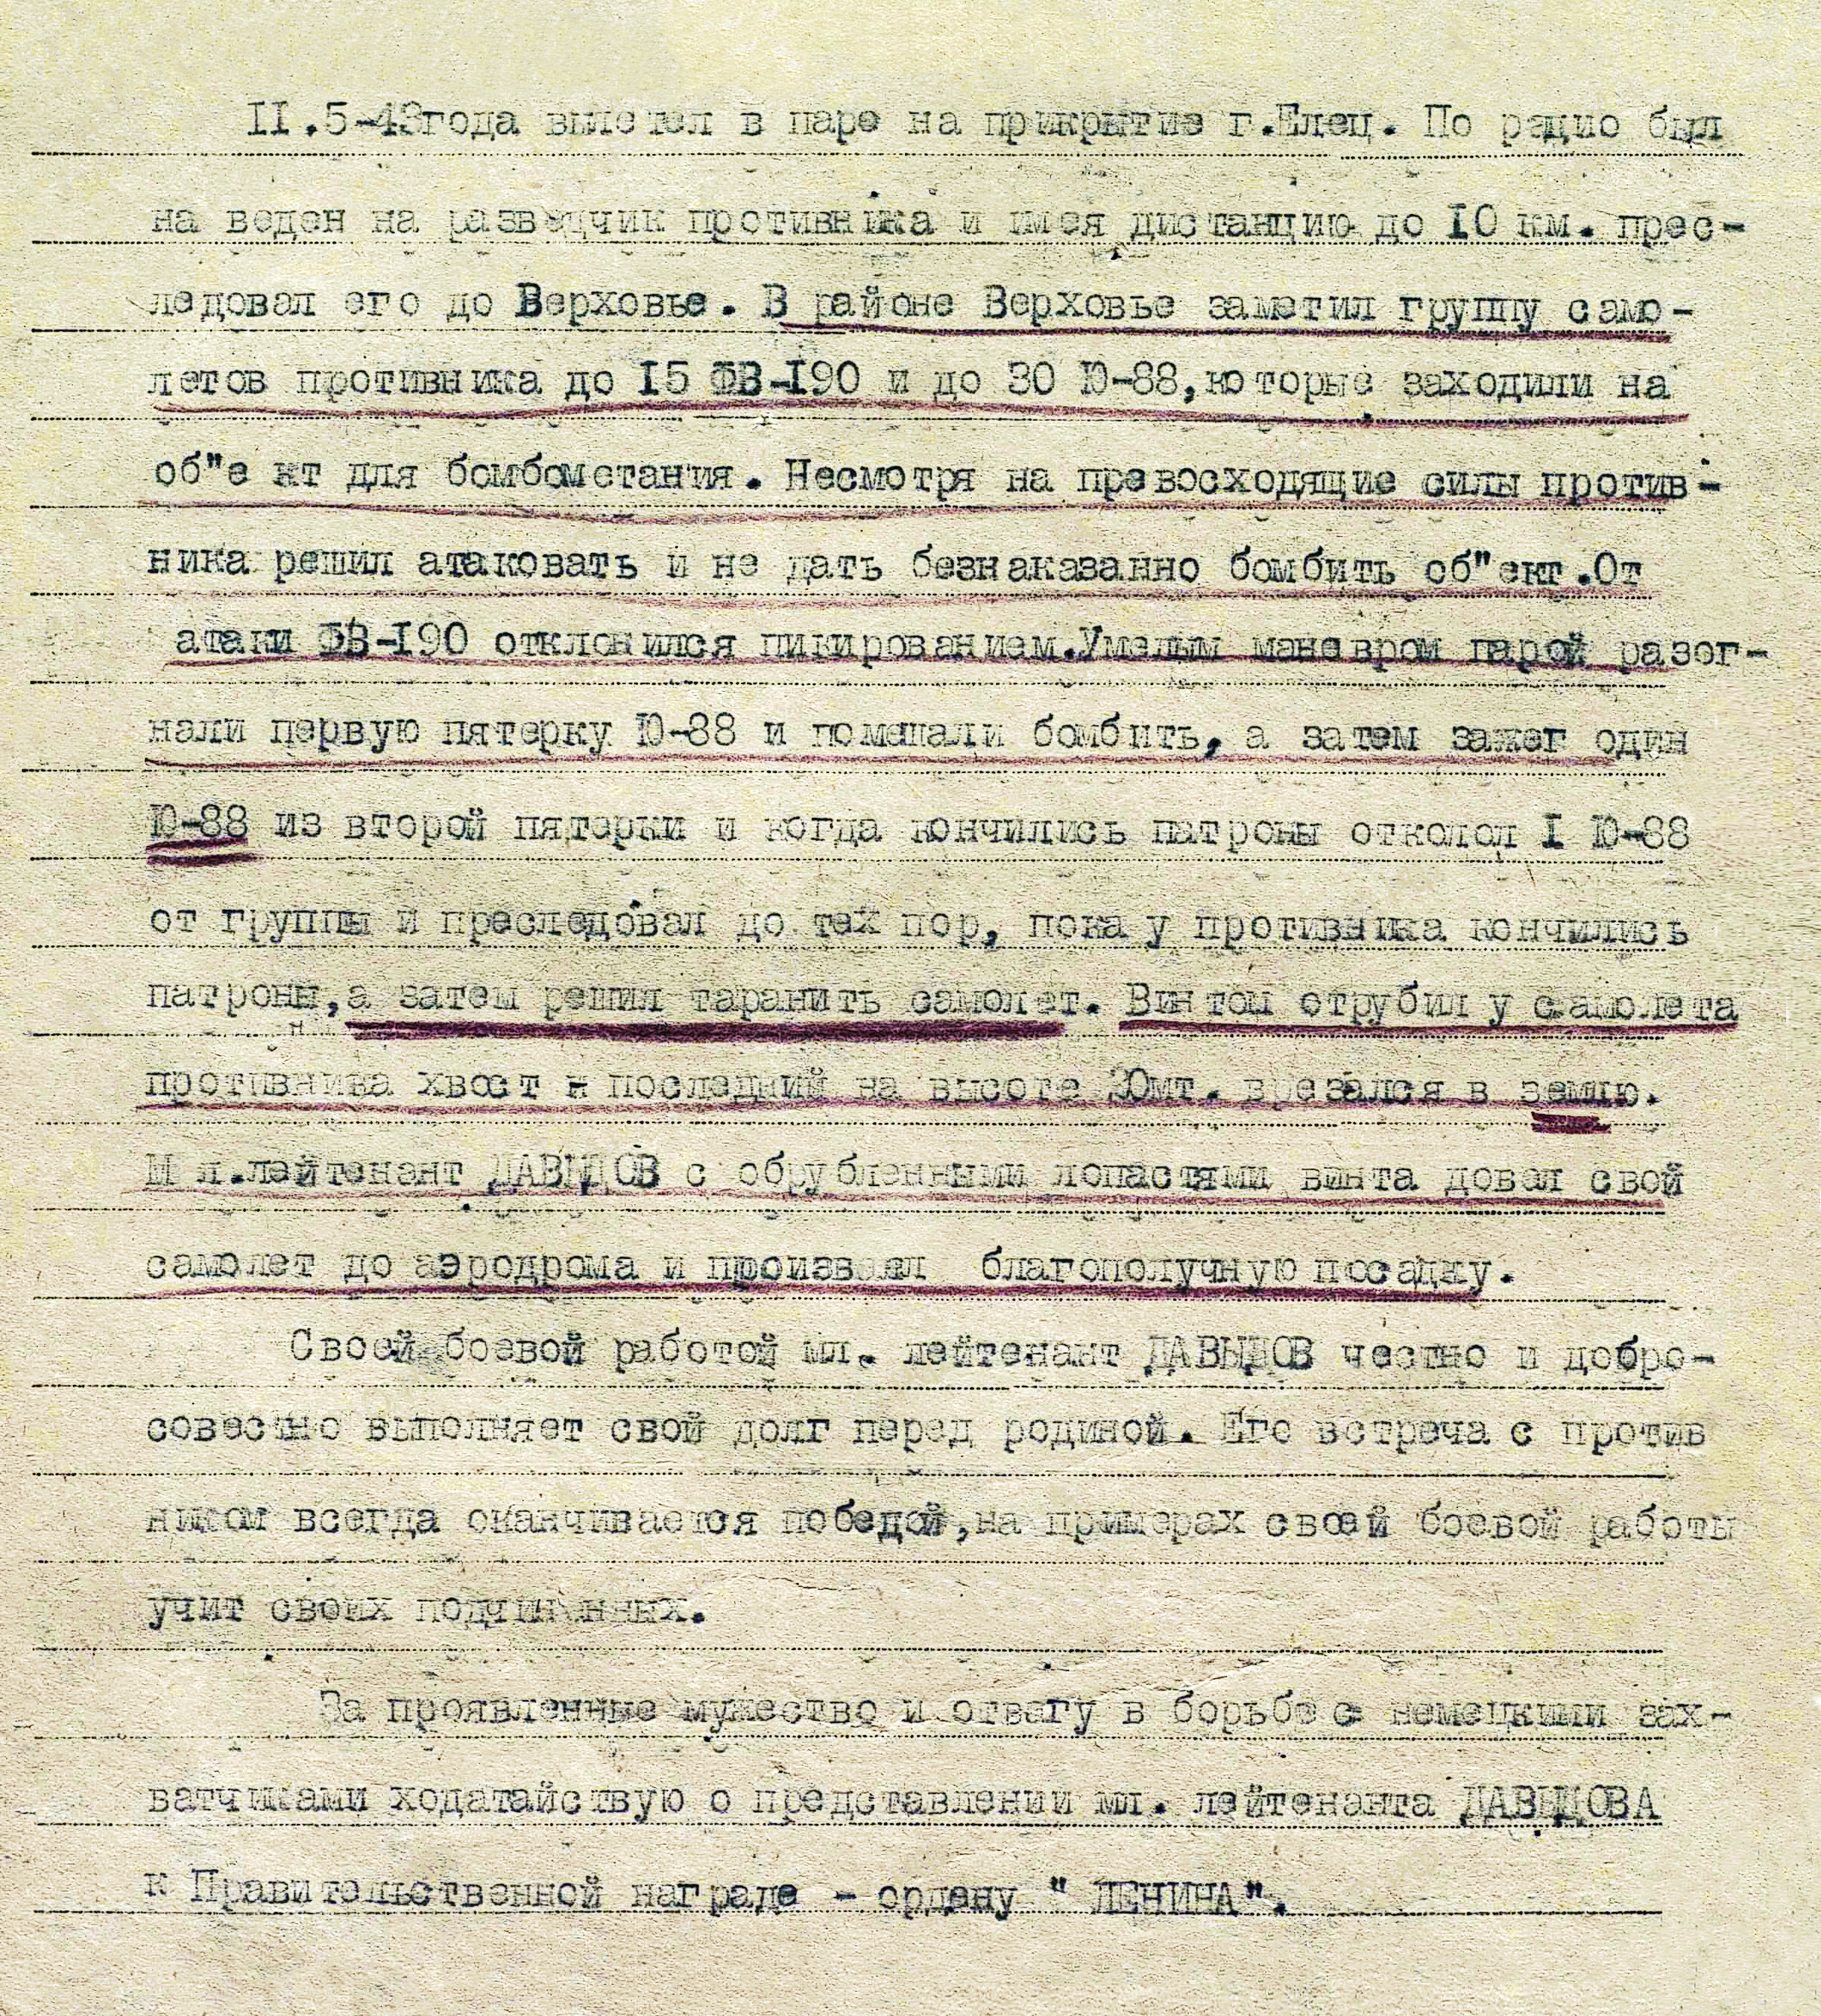 II.5-43года вылетел в паре на прикрытие г.Елец. По радио был
на веден на разведчик противника и имея дистанцию до 10 км. прес-
ледовал его до Верховье. В районе Верховье заметил группу само-
летов противника до 15 ФВ-190 и до 30 Ю-88,которые заходили на
об"е кт для бомбометания. Несмотря на превосходящие силы против-
ника решил атаковать и не дать безнаказанно бомбить об"ект.От
атаки ФВ-190 отклонился пикированием.Умелым маневром парой разог-
нали первую пятерку Ю-88 и помешали бомбить, а затем зажег один
Ю-88 из второй пятерки и когда кончились патроны отколол I Ю-88
от группы и преследовал до тех пор, пока у противника кончились
патроны,а затем решил таранить самолет. Винтом отрубил у самолета
противника хвост и последний на высоте 30мт. врезался в землю.
М л.лейтенант ДАВЫДОВ с обрубленными лопастями винта довел свой
самолет до аэродрома и произвел благополучную посадку.
Своей боевой работой мл. лейтенант ДАВЫДОВ честно и добро-
совестно выполняет свой долг перед родиной. Его встреча с против
ником всегда оканчивается победой,на примерах своей боевой работы
учит своих подчиненных.
За проявленные мужество и отвагу в борьбе с немецкими зах-
ватчиками ходатайствую о представлении мл. лейтенанта ДАВЫДОВА
к Правительственной награде - ордену " ЛЕНИНА".